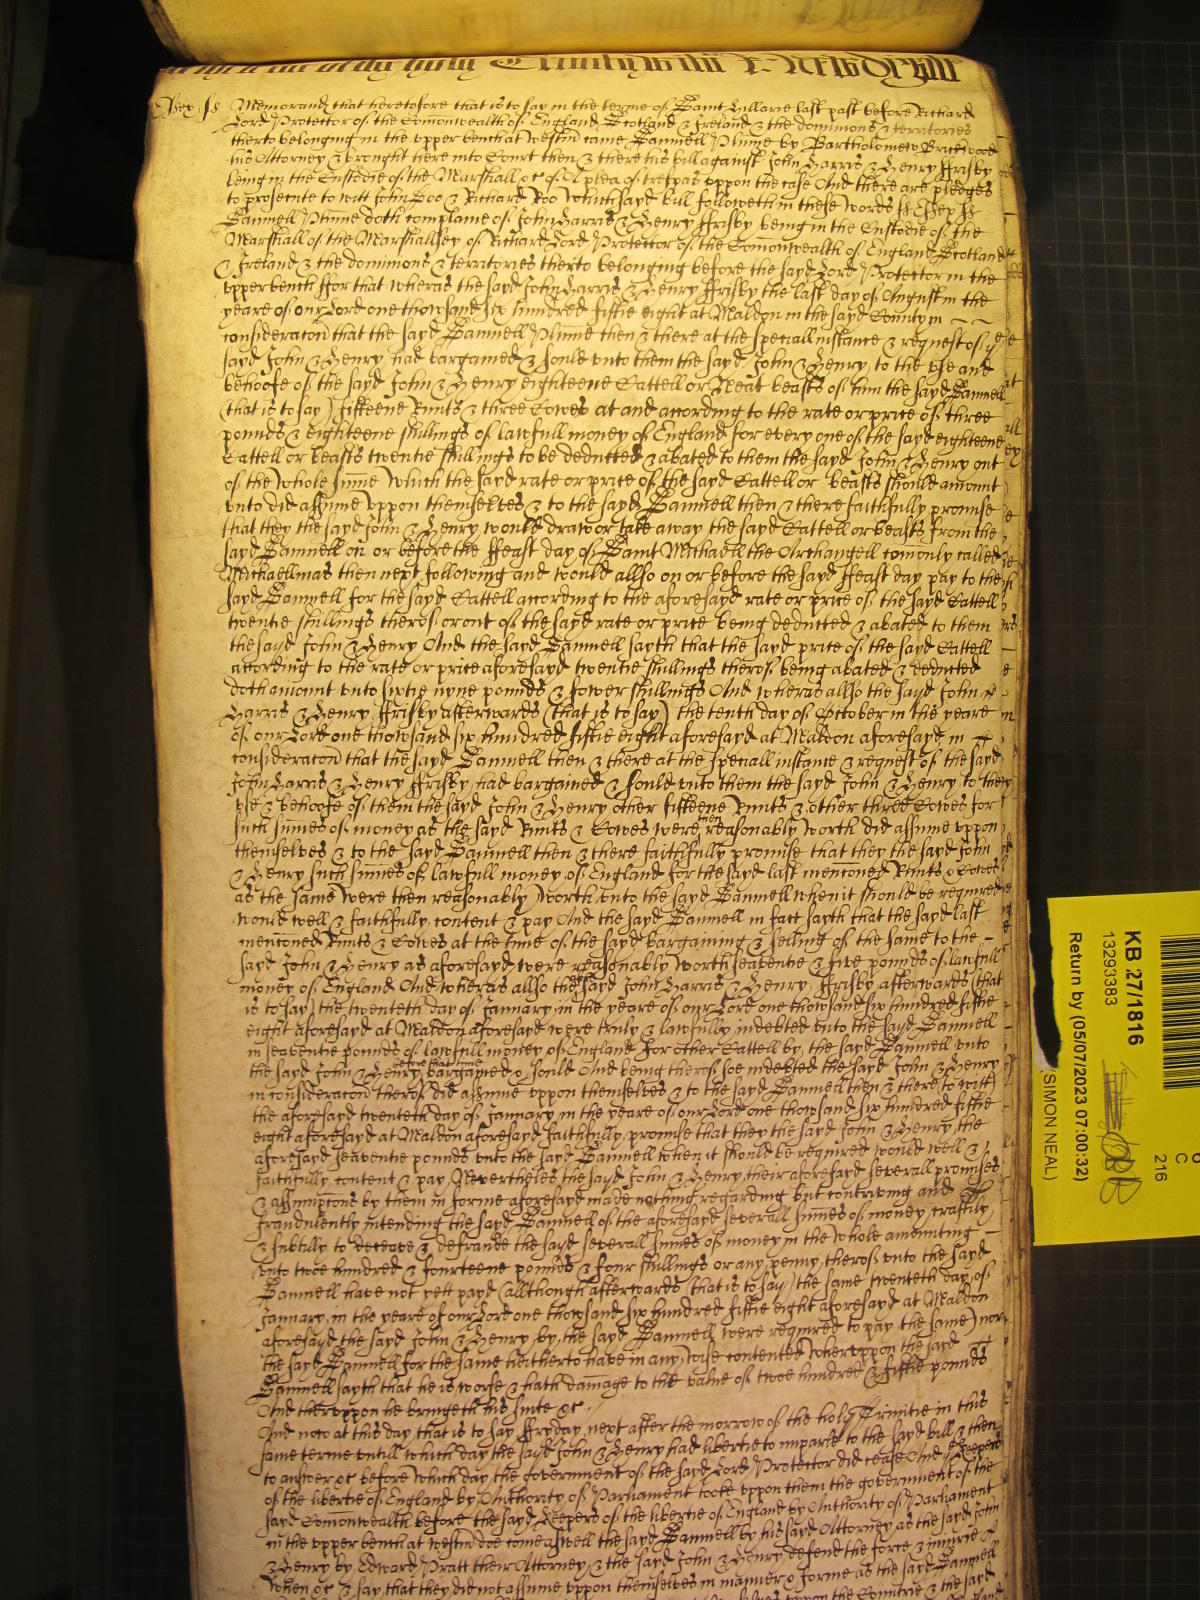 Essex ss Memorand that heretofore that is to say in the terme of Saint Hillarie last past before Richard
Lord Protector of the Comonwealth of England Scotland & Ireland & the dominions & territories
therto belonging in the upper bench at Westm came Samuell Plume by Bartholomew
his Attorney & brought here into Court then & there his bill against John Harris & Henry ffrisby
being in the Custodie of the Marshall &c of A plea of trespas uppon the case And there are pledges
to prosecute to witt John Doo & Richard Roo Which sayd bill followeth in these words ss Essex ss
Samuell Plume doth complaine of John Harris & Henry ffrisby being in the Custodie of the
Marshall of the Marshallsey of Richard Lord Protector of the Comonwealth of England Scotland
& Ireland & the dominions & territories therto belonging before the sayd Lord Protector in the
upper bench ffor that wheras the sayd John Harris & Henry ffrisby the last day of August in the
yeare of our Lord one thowsand six hundred fiftie eight at Maldon in the sayd County in
consideracon that the sayd Samuell Plume then & there at the speciall instance & request of ye
sayd John & Henry had bargained & sould unto them the sayd John & Henry, to the use and
behoofe of the sayd John & Henry eighteene Cattell or Neat beasts of him the sayd Samuell
(that is to say) fifteene Runts & three Cowes at and according to the rate or price of three
pounds & eighteene shillings of lawfull money of England for every one of the sayd eighteene
Cattell or beasts twentie shillings to be deducted & abated to them the sayd John & Henry out
of the whole sume Which the sayd rate or price of the sayd Cattell or beasts should amount
unto did assume uppon themselves & to the sayd Samuell then & there faithfully promise
that they the sayd John & Henry would draw or take away the sayd Cattell or beasts from the
sayd Samuell on or before the ffeast day of Saint Michaell the Archangell comonly called
Michaellmas then next following and would allso on or before the sayd ffeast day pay to the
sayd Samuell for the sayd Cattell according to the aforesayd rate or price of the sayd Cattell
twentie shillings therof or out of the sayd rate or price being deducted & abated to them
the sayd John & Henry And the sayd Samuell sayth that the sayd price of the sayd Cattell
according to the rate or price aforesayd twentie shillings therof being abated & deducted
doth amount unto sixtie nyne pounds & fower shillings And wheras allso the sayd John
Harris & Henry ffrisby afterwards (that is to say) the tenth day of October in the yeare
of our Lord one thowsand six hundred fiftie eight aforesayd at Maldon aforesayd in
consideracon that the sayd Samuell then & there at the speciall instance & request of the sayd
John Harris & Henry ffrisby, had bargained & sould unto them the sayd John & Henry to the
use & behoofe of them the sayd John & Henry other fifteene Runts & other three Cowes for
such sumes of money as the sayd Runts & Cowes were then reasonably worth did assume uppon
themselves & to the sayd Samuell then & there faithfully promise that they the sayd John
& Henry such sumes of lawfull money of England for the sayd last menconed Runts & Cowes
as the same were then reasonably worth unto the sayd Samuell when it should be required
would well & faithfully content & pay And the sayd Samuell in fact sayth that the sayd last
mencioned Runts & Cowes at the time of the sayd bargaining & selling of the same to the
sayd John & Henry as aforesayd were reasonably worth seaventie & five pounds of lawfull
money of England And wheras allso the sayd John Harris & Henry ffrisby afterwards (that
is to say) the twenteth day of January in the yeare of our Lord one thowsand six hundred fiftie
eight aforesayd at Maldon aforesayd were truly & lawfully indebted unto the sayd Samuell
in seaventie pounds of lawfull money of England for other Cattell by the sayd Samuell unto
the sayd John & Henry before that time bargained & sould And being therof soe indebted the sayd John & Henry
in consideracon therof did assume uppon themselves & to the sayd Samuell then & there to witt
the aforesayd twenteth day of January in the yeare of our Lord one thowsand six hundred fiftie
eight aforesayd at Maldon aforesayd faithfully promise that they the sayd John & Henry, the
aforesayd seaventie pounds unto the sayd Samuell when it should be required would well &
faithfully content & pay Nevertheles the sayd John & Henry, their aforesayd severall promises
& assumpcons by them in forme aforesayd made nothing regarding but contriving and
fraudulently intending the sayd Samuell of the aforesayd severall sumes of money craftily
& subtilly to deceave & defraude the sayd severall sumes of money in the whole amounting
unto twoe hundred & fourteene pounds & four shillings or any penny therof unto the sayd
Samuell have not yett payd (allthough afterwards (that is to say) the same twenteth day of
January, in the yeare of our Lord one thowsand six hundred fiftie eight aforesayd at Maldon
aforesayd the sayd John & Henry by, the sayd Samuell were required to pay the same) nor
the sayd Samuell for the same heitherto have in any wise contented Wheruppon the sayd
Samuell sayth that he is worse & hath damage to the value of twoe hundred & fiftie pounds
And theruppon he bringeth his suite &c
And now at this day that is to say ffryday next after the morrow of the holy Trinitie in this
same terme untill which day the sayd John & Henry had libertie to imparle to the sayd bill & then
to answer &c before which day, the government of the sayd Lord Protector did cease And ye Keepers
of the libertie of England by Authority of Parliament tooke uppon them the government of the
sayd Comonwealth before the sayd Keepers of the libertie of England by Authority of Parliament
in the upper bench at Westm doe come aswell the sayd Samuell by his sayd Attorney as the sayd John
& Henry by Edward Pratt their Attorney, & the sayd John & Henry defend the force & iniurie
when &c & say, that they did not assume uppon themselves in manner & forme as the sayd Samuell
KB 27/1816
13293383
Return by (05/07/2023 07:00:32)
(SIMON NEAL)
C
216